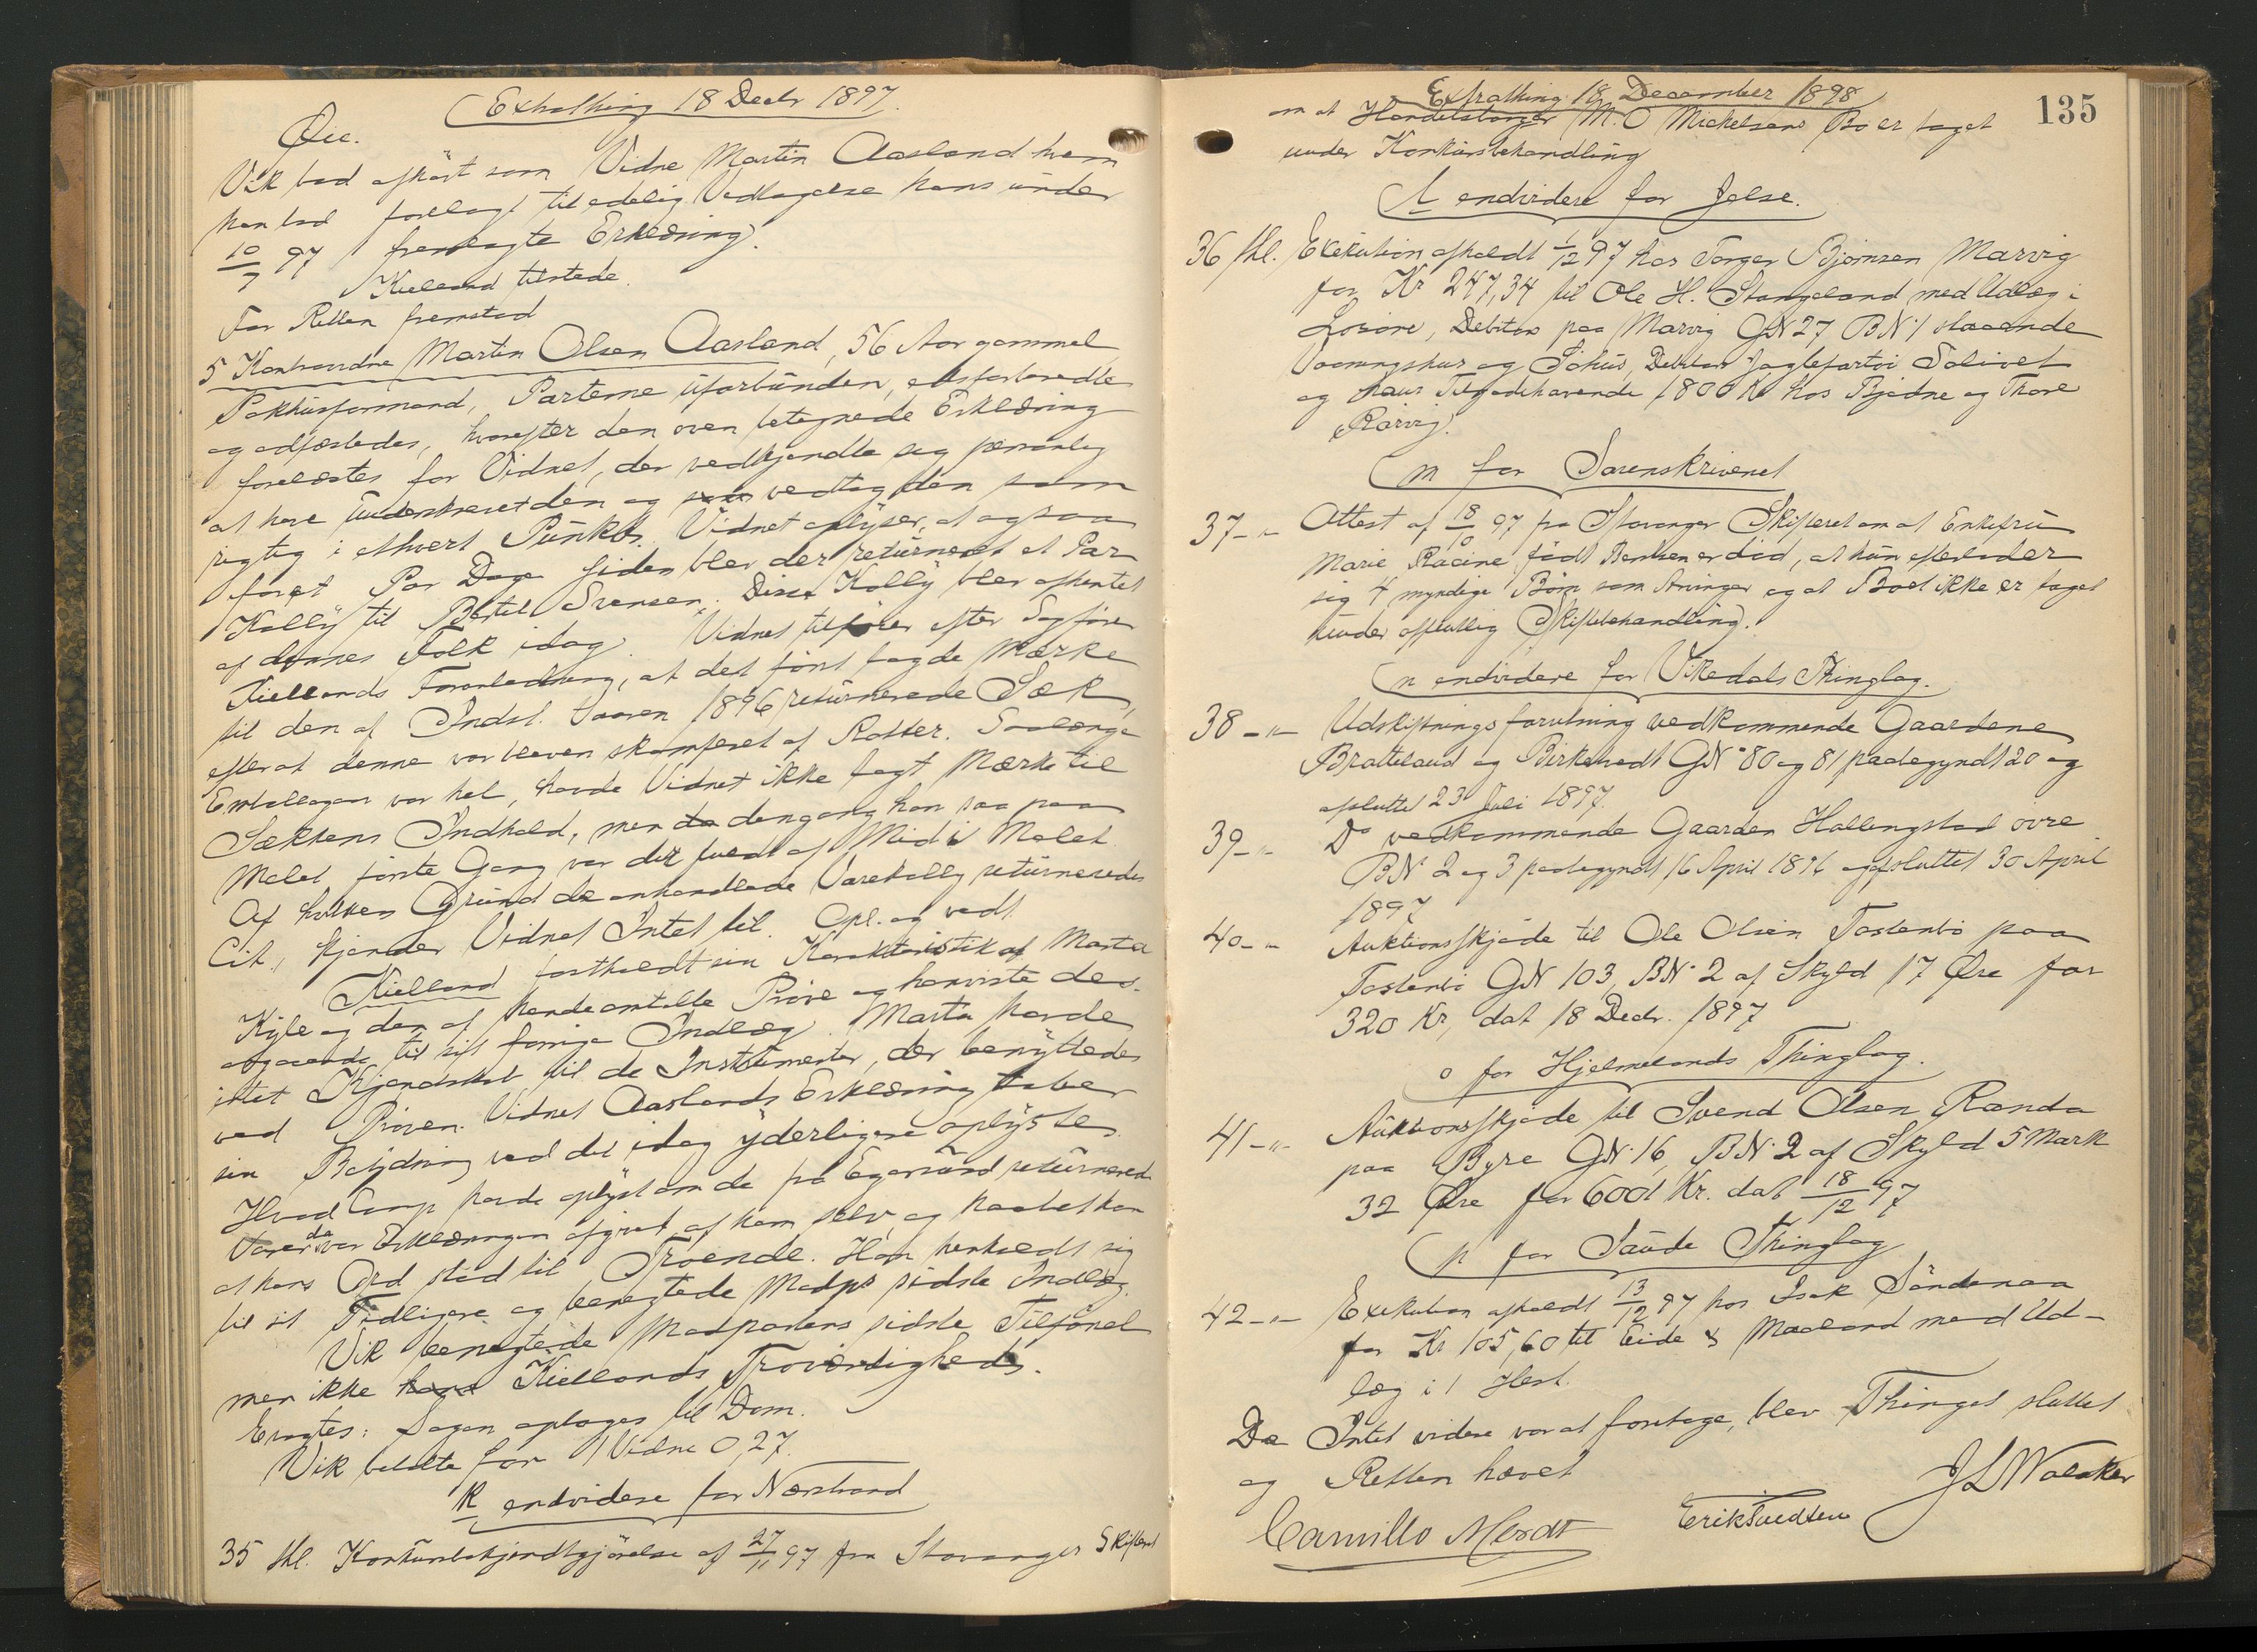 Extrathing 18 Decbr 1897.
Øre.
Vik bad afhørt som Vidne Martin Aasland hvem
han bad forelagt til edelig Vedtagelse hans under
10/7 97 fremlagte Erklæring.
Kielland tilstede.
For Retten fremstod
5 Kontravidne Martin Olsen Aasland, 56 Aar gammel
Pakhusformand, Parterne uforbunden, edsforberedte
og edfæstedes, hvorefter den oven betegnede Erklæring
forelæstes for Vidnet, der vedkjendte sig personlig
at have underskrevet den og vedtog den som
rigtig i ethvert Punkt. Vidnet oplyser, at ogsaa
for et Par Dage siden blev der returneret et Par
Kolly til Bertel Svensen. Disse Kolly blev afhentet
af dennes Folk idag. Vidnet tilføier efter Sagfører
Kiellands Foranledning, at det først lagde Mærke
til den af Indst. Vaaren 1896 returnerede Sæk,
efterat denne var bleven skamferet af Rotter. Saalænge
Emballagen var hel, havde Vidnet ikke lagt Mærke til
Sækkens Indhold, men da dengang han saa paa
Melet første Gang var der fuldt af Mid i Melet
Af hvilken Grund de omhandlede Varekolly returneredes
Cit., kjender Vidnet Intet til. Opl. og vedt.
Kielland fastholdt sin Karakteristik af Marta
Kyle og den af hende omtalte Prøve og henviste des-
angaaende til sit forrige Indlæg. Marta havde
intet Kjendskab til de Instrumenter, der benyttedes
ved Prøven. Vidnet Aaslands Erklæring taber
sin Betydning ved det idag yderligere oplyste.
Hvad Comp havde oplyst om de fra Egersund returnerede
Varer da var Erklæringen afgivet af ham selv, og haabet han
at hans Ord stod til Troende. Han henholdt sig
til sit Tidligere og benegtede Modps sidste Indlæg.
Vik benegtede Modpartens sidste Tilførsel
men ikke hans Kiellands Troværdighed.
Eragtes: Sagen optages til Dom.
Vik betalte for 1 Vidne 0,27.
k endvidere for Nærstrand
35 thl. Konkursbekjendtgjørelse af 27/11 97 fra Stavanger Skifteret
Extrathing 18 December 1898
135
om at Handelsborger M. O Mickelsens Bo er taget
under Konkursbehandling
l endvidere for Jelse.
36 thl. Exekution afholdt 1/12 97 hos Torger Bjørnsen Marvig
for Kr 247,34 til Ole H. Stangeland med Udlæg i
Losøre, Debitors paa Marvig GN 27 BN 1 staaende
Vaaningshus og Søhus, Debitors Jagtefartøi Solivet
og hans Tilgodehavende 1800 Kr hos Bjødne og Thore
Rørvig.
m for Sorenskriveriet
37 -"- Attest af 18/10 97 fra Stavanger Skifteret om at Enkefru
Marie Racine født Bentsen er død, at hun efterlader
sig 4 myndige Børn som Arvinger og at Boet ikke er taget
under offentlig Skiftebehandling.
n endvidere for Vikedals Thinglag.
38 -"- Udskiftningsforretning vedkommende Gaardene
Bratteland og Birkeland GN 80 og 81 paabegyndt 20 og
afsluttet 23 Juli 1897.
39 -"- Do vedkommende Gaarden Hallingstad øvre
BN 2 og 3 paabegyndt 16 April 1896 og afsluttet 30 April
1897
40 -"- Auktionsskjøde til Ole Olsen Tostenbø paa
Tostenbø GN 103, BN 2 af Skyld 17 Øre for
320 Kr, dat 18 Decbr. 1897
o for Hjelmelands Thinglag.
41 -"- Auktionsskjøde til Svend Olsen Randa
paa Byre GN 16, BN 2 af Skyld 5 Mark
32 Øre for 6001 Kr. dat 18/12 97
p for Saude Thinglag
42 -"- Exekution afholdt 13/12 97 hos Isak Søndenaa
for Kr 105,60 til Eide & Maaland med Ud-
læg i 1 Hest.
Da Intet videre var at foretage, blev Thinget sluttet
og Retten hævet
J L Walaker
Camillo Mordt Erik Tvedten